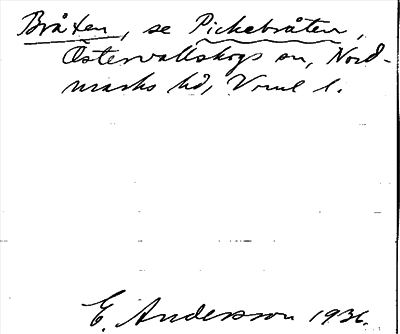 Bråten, se Pickebråten,
Östervallskogs sn, Nord-
marks hd, Vrml l.
E. Andersson 1936.